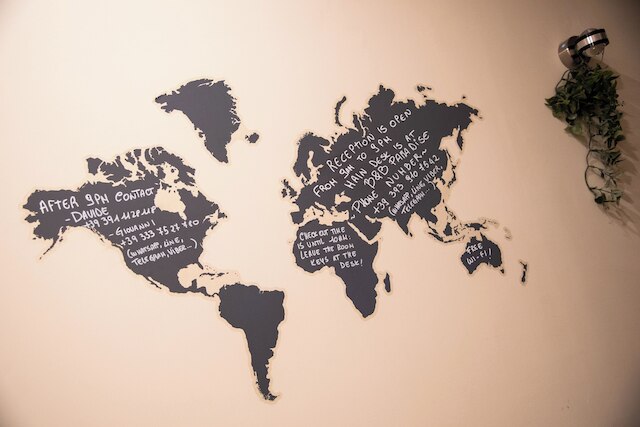 AFTER 9PM CONTACT
- DAVIDE
- GIOVANNI
(WHATSAPP, LINE,
TELEGRAM, VIBER...)
RECEPTION IS OPEN
FROM 9AM TO 9PM
MAIN DESK IS AT
B&B PARADISE
- PHONE NUMBER -
(WHATSAPP, LINE, VIBER,
TELEGRAM)
CHECK OUT TIME
IS UNTIL 10AM!
LEAVE THE ROOM
KEYS AT THE
DESK!
FREE
WI-FI!